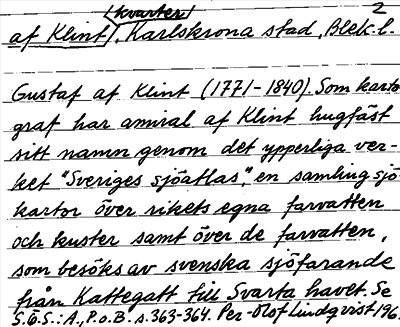 kvarter 2
af Klint, Karlskrona stad, Blek.l.
Gustaf af Klint (1771-1840). Som karto
graf har amiral af Klint hugfäst
sitt namn genom det ypperliga ver-
ket "Sveriges sjöatlas", en samling sjö
kartor över rikets egna farvatten
och kuster samt över de farvatten,
som besöks av svenska sjöfarande
från Kattegatt till Svarta havet. Se
S.Ö.S.: A., P. o. B. s. 363-364. Per-Olof Lindqvist/96.